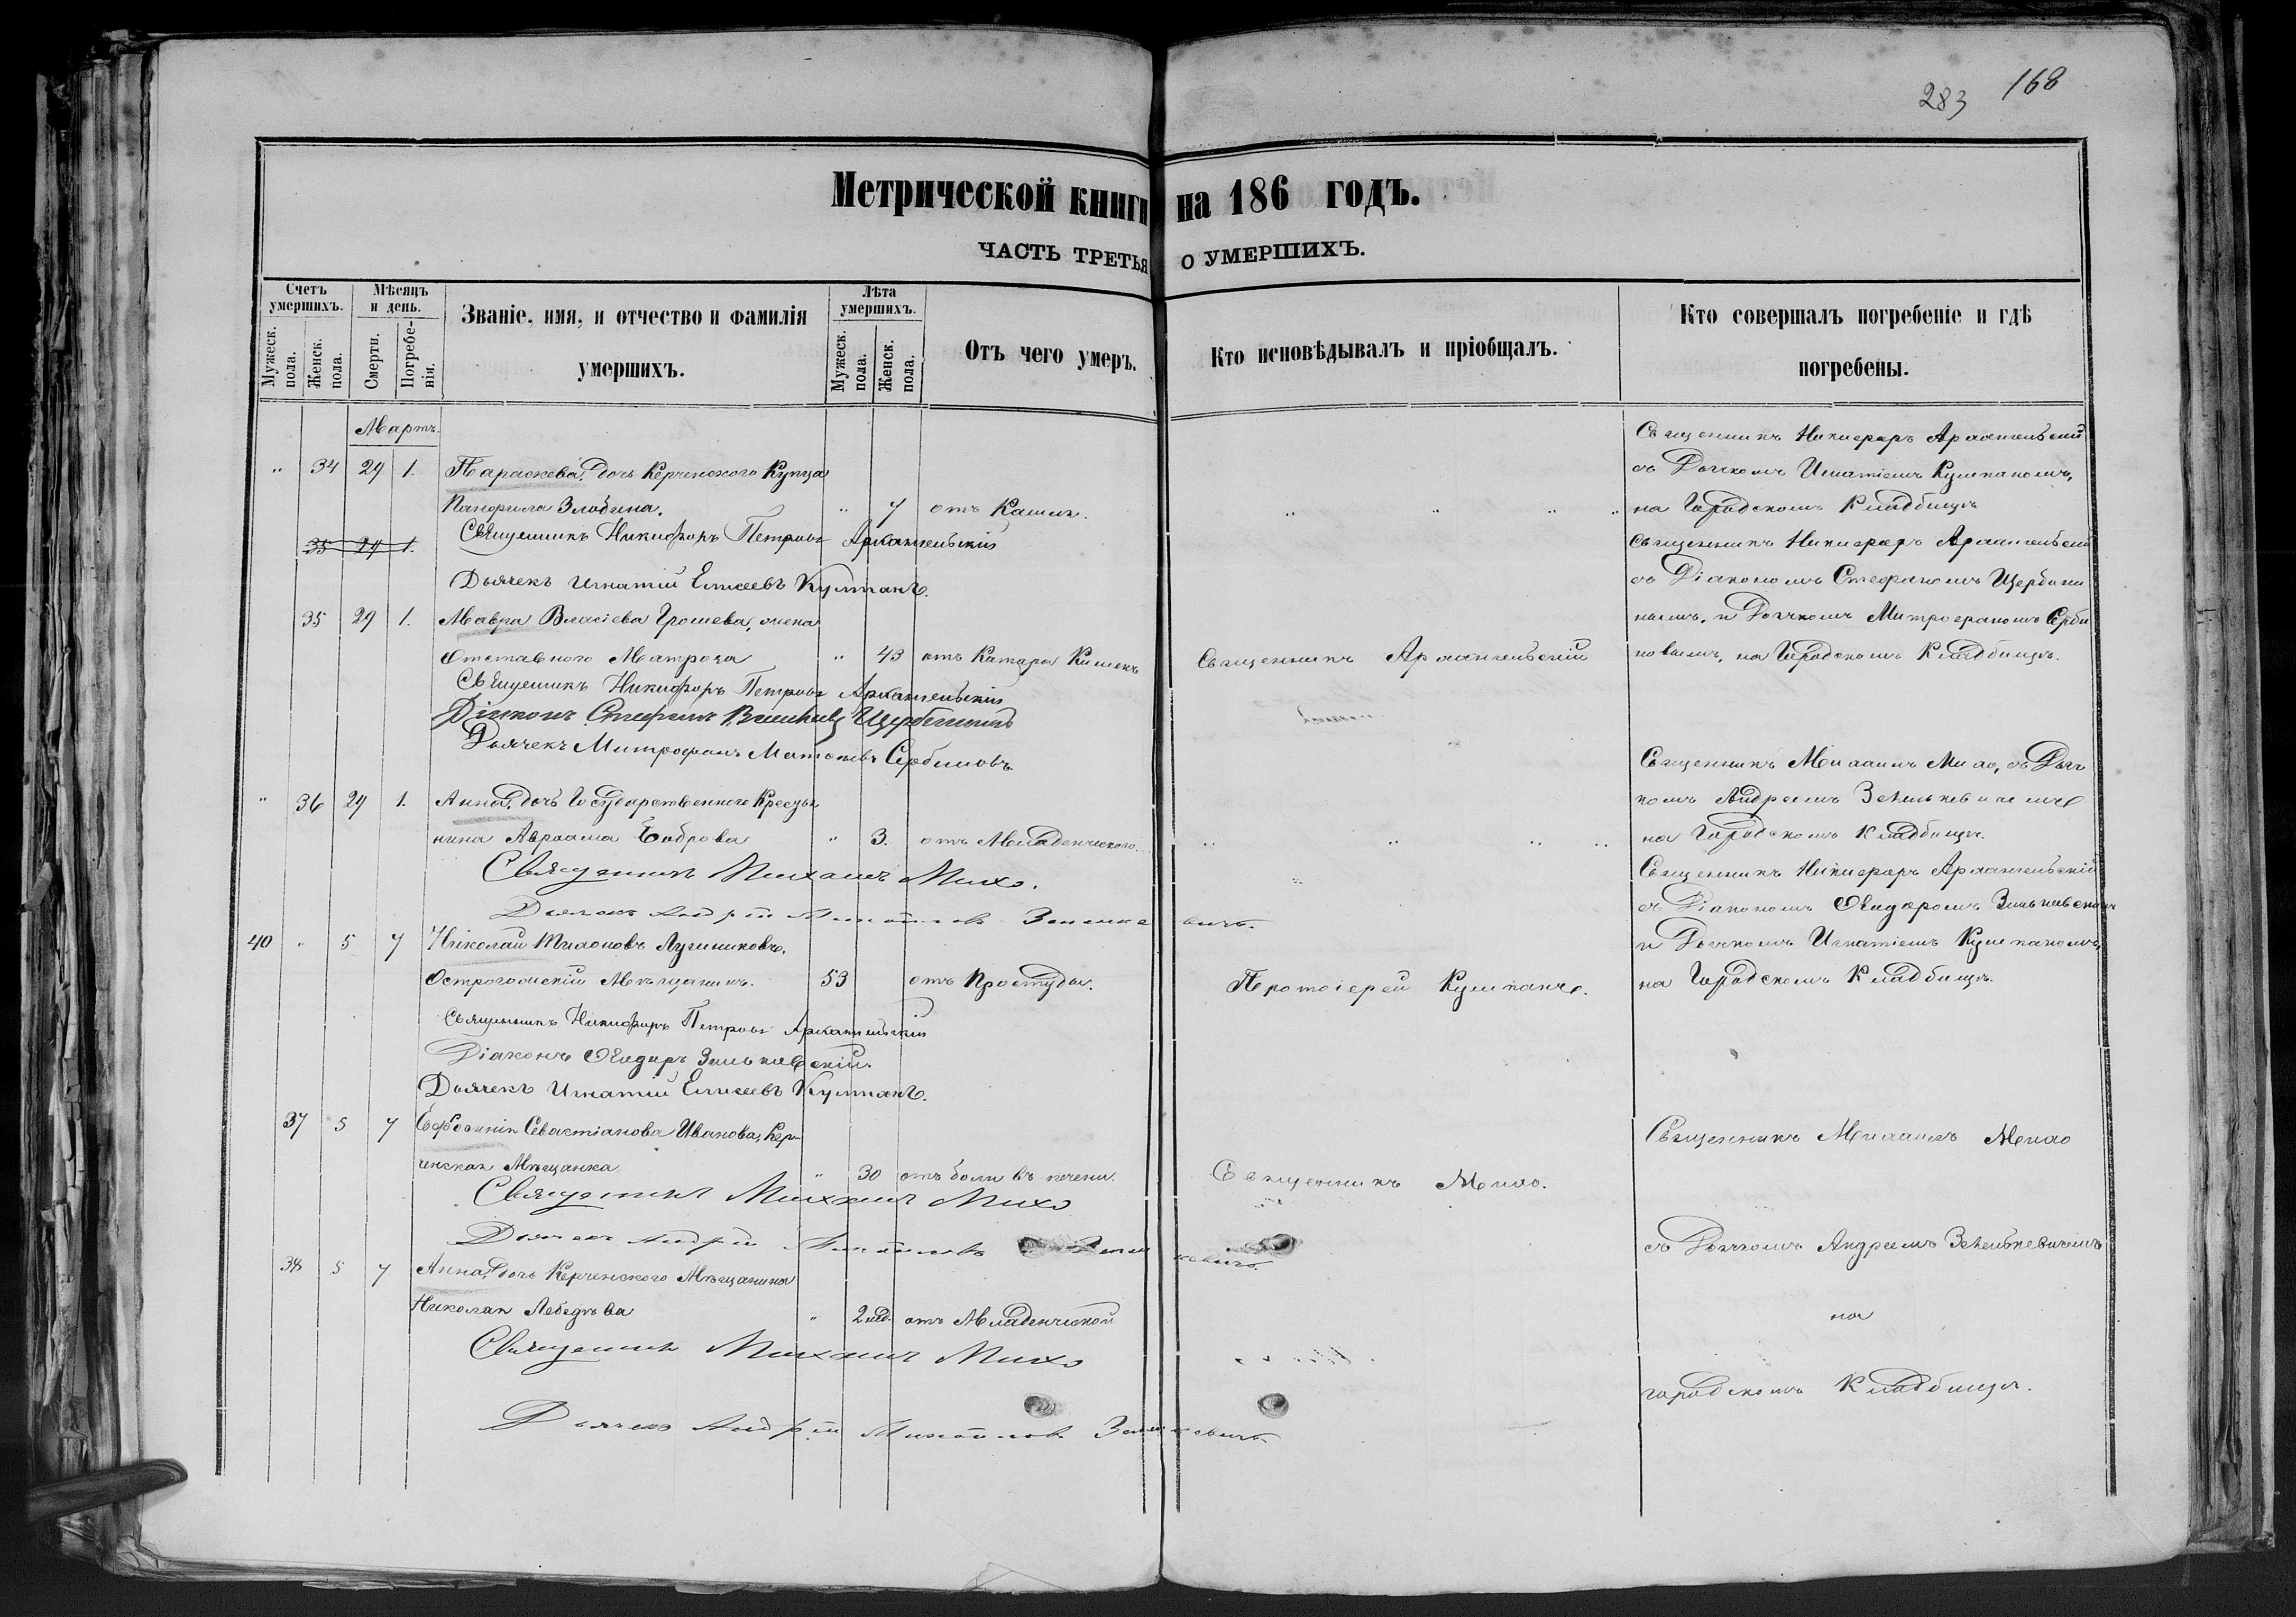 283 168
Метрической книги на 186 годъ.
ЧАСТЬ ТРЕТЬЯ О УМЕРШИХЪ.
Счетъ умершихъ.
Мужеск. пола.
Женск. пола.
Мѣсяцъ и день.
Смерти.
Погребенія.
Званіе, имя, и отчество и фамилія
умершихъ.
Лѣта умершихъ.
Мужеск. пола.
Женск. пола.
Отъ чего умеръ.
Кто исповѣдывалъ и пріобщалъ.
Кто совершалъ погребеніе и гдѣ
погребены.
Мартъ.
" 34 29 1. Параскева, дочь Керченского Купца
Злобина. " 7 отъ Кашля.
Священникъ Никифоръ Архангельскій
съ Дьячкомъ Игнатіемъ Кушпаномъ,
на Городскомъ Кладбищѣ
35 29 1. Священникъ Никифоръ Петровъ Архангельскій
Дьячекъ Игнатій Елисеевъ Кушпанъ.
35 29 1. Мавра Власіева Грошева, жена
Отставного Матроса " 43 отъ Катара Кишекъ
Священникъ Архангельскій
Священникъ Никифоръ Архангельскій
съ Діакономъ Стефаномъ Щербини
нымъ, и Дьячкомъ Митрофаномъ Серби
новымъ, на Городскомъ Кладбищѣ.
Священникъ Никифоръ Петровъ Архангельскій
Діаконъ Стефанъ Щербининъ
Дьячекъ Митрофанъ Сербиновъ
" 36 29 1. Анна, дочь Государственного Кресть
нина Авраама Боброва " 3. отъ Младенческого.
Священникъ Михаилъ Михо, съ Дьяч
комъ Андреемъ Зенькевичемъ
на Городскомъ Кладбищѣ.
Священникъ Михаилъ Михо.
Дьячекъ Андрей Михайловъ Зенькевичъ.
40 " 5 7 Николай Лучниковъ,
Острогожскій Мѣщанинъ. 53 отъ Простуды.
Протоіерей Кушпанъ.
Священникъ Никифоръ Архангельскій
съ Діакономъ
и Дьячкомъ Игнатіемъ Кушпаномъ,
на Городскомъ Кладбищѣ.
Священникъ Никифоръ Петровъ Архангельскій
Діаконъ
Дьячекъ Игнатій Елисеевъ Кушпанъ.
37 5 7 Евфросинія Севастіанова Иванова, Кер-
ченская Мѣщанка. " 30 отъ боли въ печени.
Священникъ Михо.
Священникъ Михаилъ Михо
Священникъ Михаилъ Михо
Дьячекъ Андрей Михайловъ Зенькевичъ.
съ Дьячкомъ Андреемъ Зенькевичемъ
38 5 7 Анна, дочь Керченского Мѣщанина
Николая Лебедѣва " 2 нед. отъ Младенческой
на
Священникъ Михаилъ Михо
городскомъ Кладбищѣ.
Дьячекъ Андрей Михайловъ Зенькевичъ.